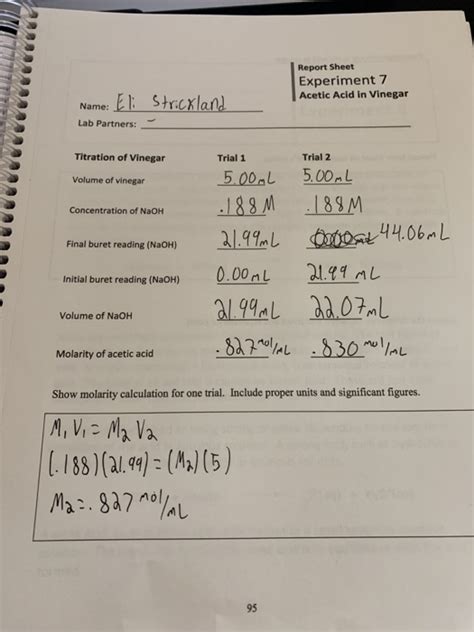 Report Sheet
Experiment 7
Acetic Acid in Vinegar
Name: Eli Strickland
Lab Partners: -
Titration of Vinegar Trial 1 Trial 2
Volume of vinegar 5.00mL 5.00mL
Concentration of NaOH .188M .188M
Final buret reading (NaOH) 21.99mL 44.06mL
Initial buret reading (NaOH) 0.00mL 21.99 mL
Volume of NaOH 21.99mL 22.07mL
Molarity of acetic acid .827 mol/mL .830 mol/mL
Show molarity calculation for one trial. Include proper units and significant figures.
M₁V₁ = M₂V₂
(.188)(21.99) = (M₂)(5)
M₂ = .827 mol/mL
95